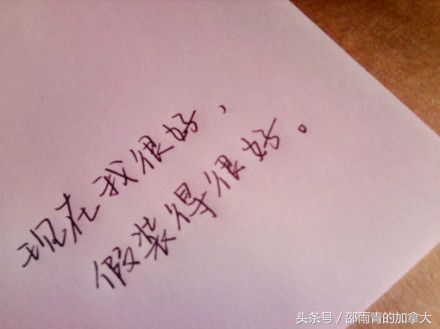 现在我很好，
假装得很好。
头条号 / 邵雨青的加拿大